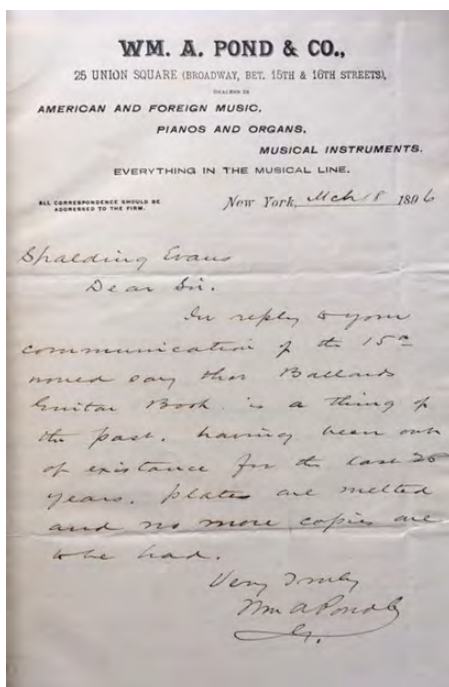 WM. A. POND & CO.,
25 UNION SQUARE (BROADWAY, BET. 15TH & 16TH STREETS),
DEALERS IN
AMERICAN AND FOREIGN MUSIC,
PIANOS AND ORGANS,
MUSICAL INSTRUMENTS.
EVERYTHING IN THE MUSICAL LINE.
ALL CORRESPONDENCE SHOULD BE
ADDRESSED TO THE FIRM.
New York, Mch 18 1896
Spalding Evans
Dear Sir.
In reply to your
communication of the 15th
would say that Ballards
Guitar Book is a thing of
the past. having been out
of existance for the last 20
years. plates are melted
and no more copies are
to be had.
Very Truly
Wm A Pond &